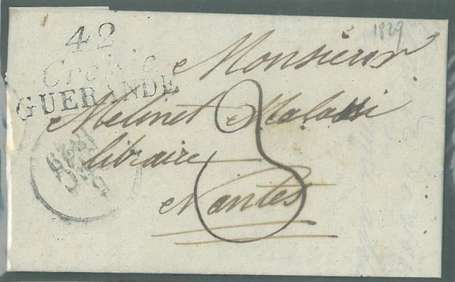 42
1829
Monsieur
Croisic
GUERANDE
Melinet Malassi
libraire
3
Nantes